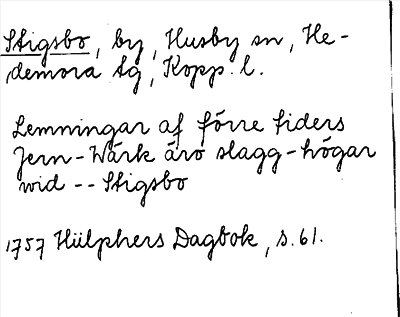 Stigsbo, by, Husby sn, He-
demora tg, Kopp. l.
Lemningar af förre tiders
Jern-Wärk äro slagg-högar
wid -- Stigsbo
1757 Hülphers Dagbok, s. 61.